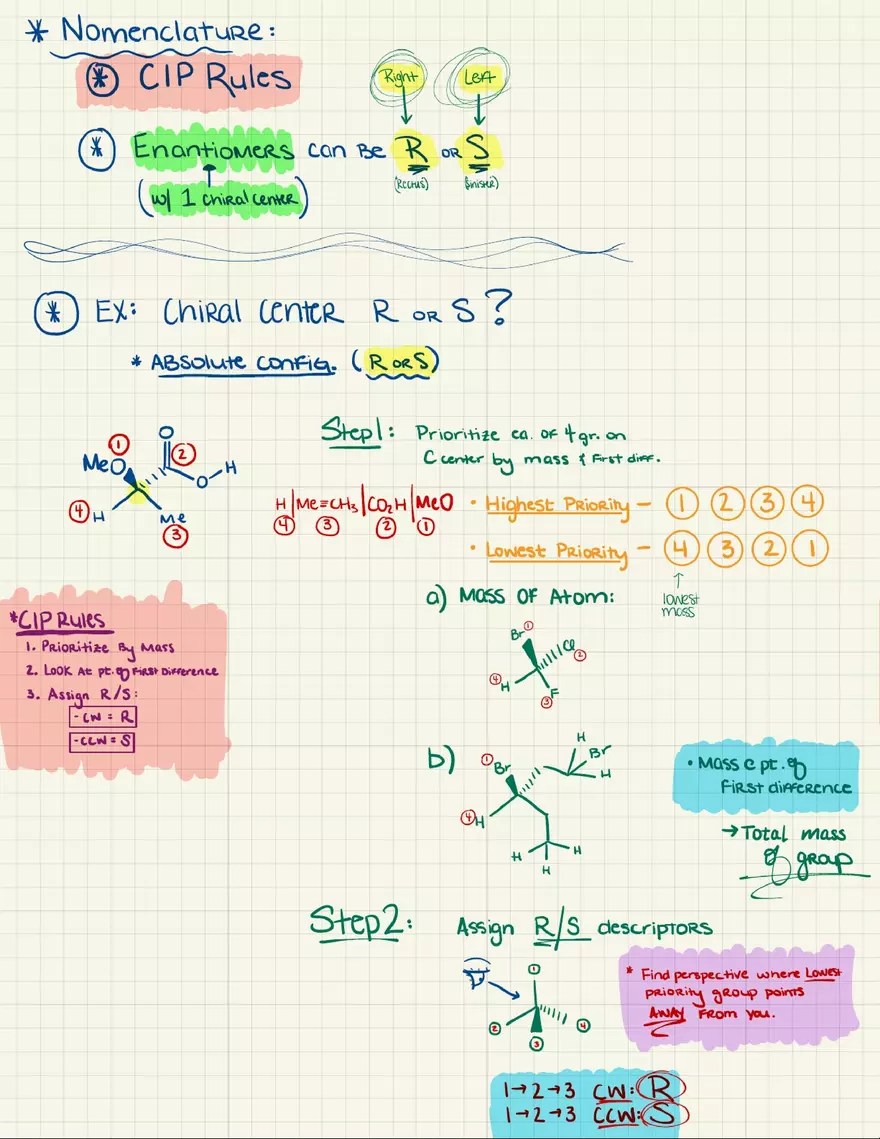 * Nomenclature:
* CIP Rules
Right Left
* Enantiomers can be R or S
(w/ 1 chiral center)
(Rectus) (Sinister)
* Ex: Chiral center R or S?
* Absolute config. (R or S)
Step 1: Prioritize ea. of 4 gr. on
C center by mass & first diff.
1 O 2
MeO O-H
4 H Me
3
H | Me≡CH₃ | CO₂H | MeO
4 3 2 1
• Highest Priority - 1 2 3 4
• Lowest Priority - 4 3 2 1
↑
lowest
mass
a) Mass of Atom:
Br 1
Cl 2
4 H F
3
*CIP Rules
1. Prioritize by Mass
2. Look at pt. of first difference
3. Assign R/S:
- CW = R
- CCW = S
b)
1 Br H Br
H
4 H
H H
H
• Mass @ pt. of
first difference
→ Total mass
of group
Step 2: Assign R/S descriptors
1
2 4
3
* Find perspective where lowest
priority group points
AWAY from you.
1→2→3 CW: R
1→2→3 CCW: S